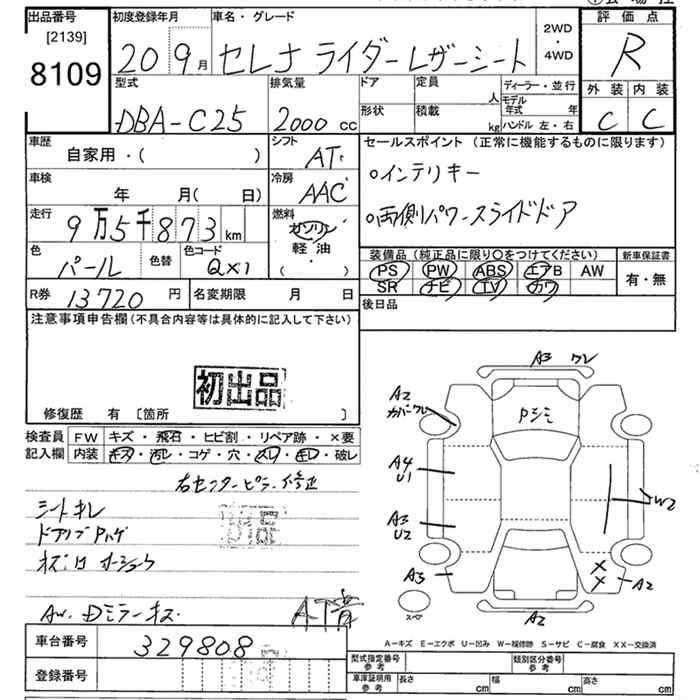 出品番号
[2139]
8109
初度登録年月
20 9月
車名・グレード
セレナ ライダーレザーシート
2WD
・
4WD
評価点
R
外装 内装
C C
型式
DBA-C25
排気量
2000 cc
ドア
形状
定員
人
積載
kg
ディーラー・並行
モデル年式 年
ハンドル 左・右
車歴
自家用・( )
シフト
AT
セールスポイント (正常に機能するものに限ります)
○インテリキー
○両側パワースライドドア
車検
年 月( 日)
冷房
AAC
走行
9万5千873 km
燃料
ガソリン
軽・油
( )
色
パール
色替
色コード
QX1
装備品 (純正品に限り○をつけてください)
PS PW ABS エアB AW
SR ナビ TV カワ
新車保証書
有・無
R券 13720 円
名変期限 月 日
後日品
注意事項申告欄 (不具合内容等は具体的に記入して下さい)
初出品
修復歴 有 [箇所 ]
検査員記入欄
FW キズ・飛石・ヒビ割・リペア跡・×要
内装 キズ・汚レ・コゲ・穴・スレ・キレ・破レ
右センターピラー修正
シートキレ
AT音
A3 ワレ
A2
カバーワレ
Pシミ
A4
U1
A3
U2
A3
W2
XX
A2
A2
スペア
A-キズ E-エクボ U-凹み W-補修跡 S-サビ C-腐食 XX-交換済
車台番号 329808
登録番号
型式指定番号
参考
類別区分番号
参考
車庫証明用
参考
長さ cm 幅 cm 高さ cm